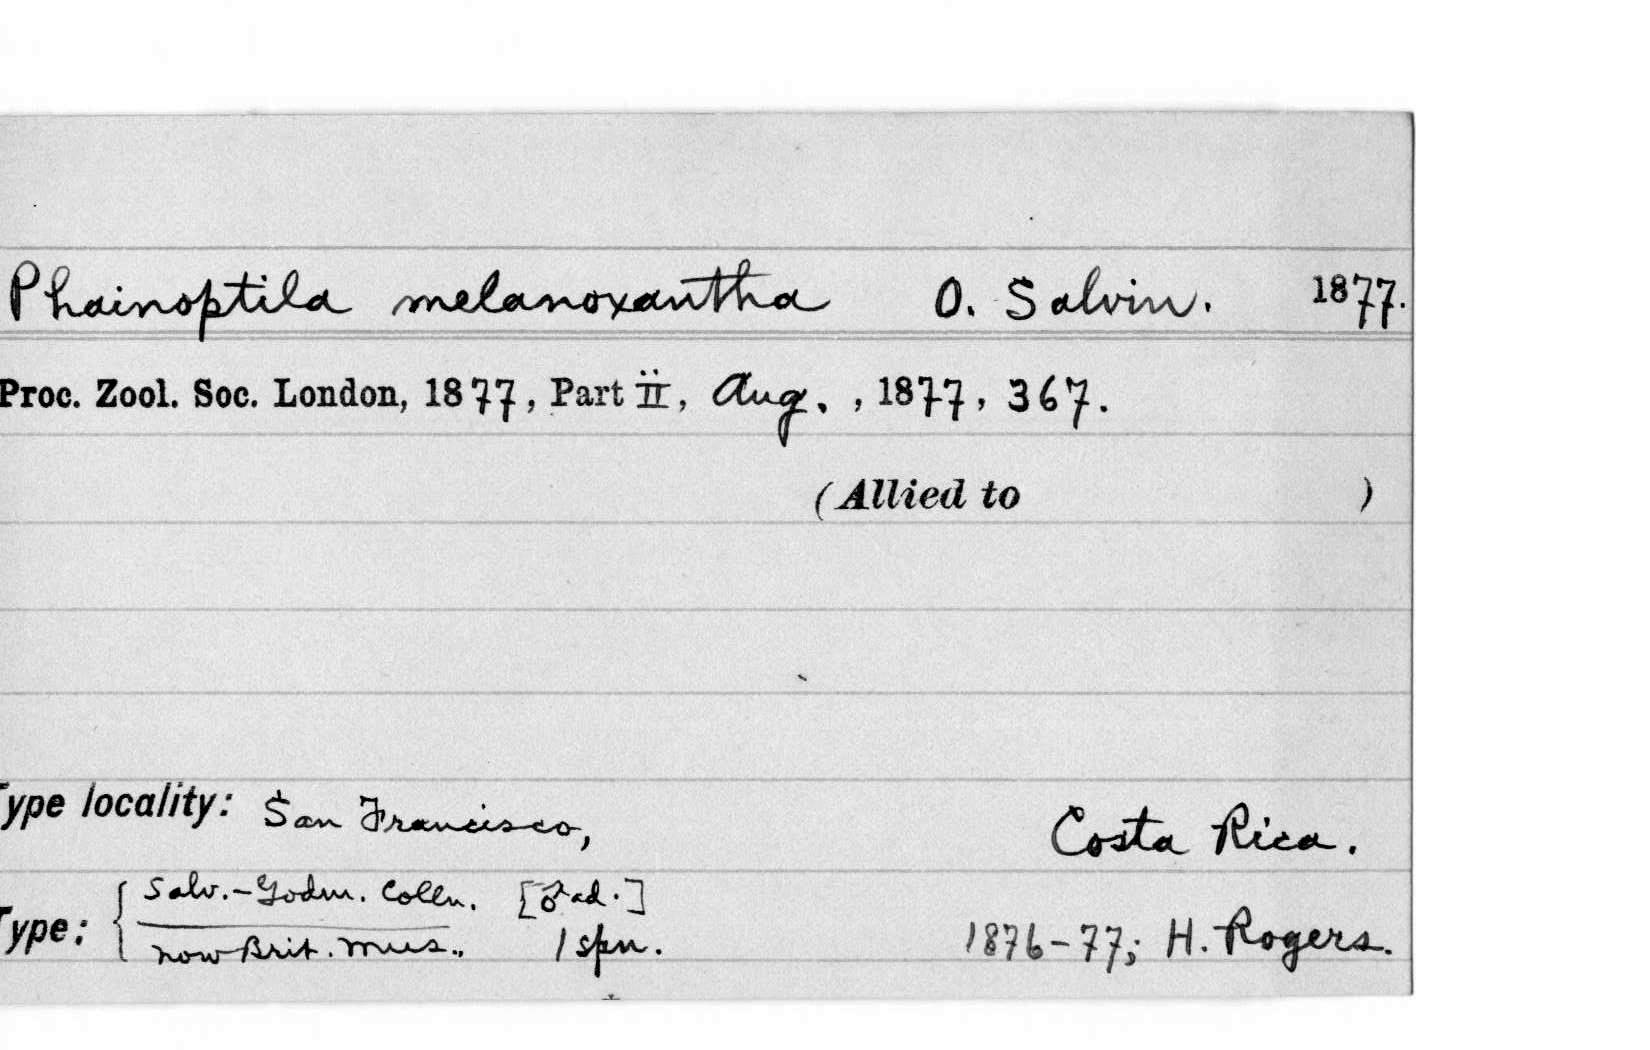 Phainoptila melanoxantha O. Salvin. 1877.
Proc. Zool. Soc. London, 1877, Part ii, Aug. , 1877, 367.
(Allied to )
Type locality: San Francisco, Costa Rica.
Salv.-Godm. Colln. [♂ ad.]
Type: now Brit. Mus., 1 spn. 1876-77; H. Rogers.